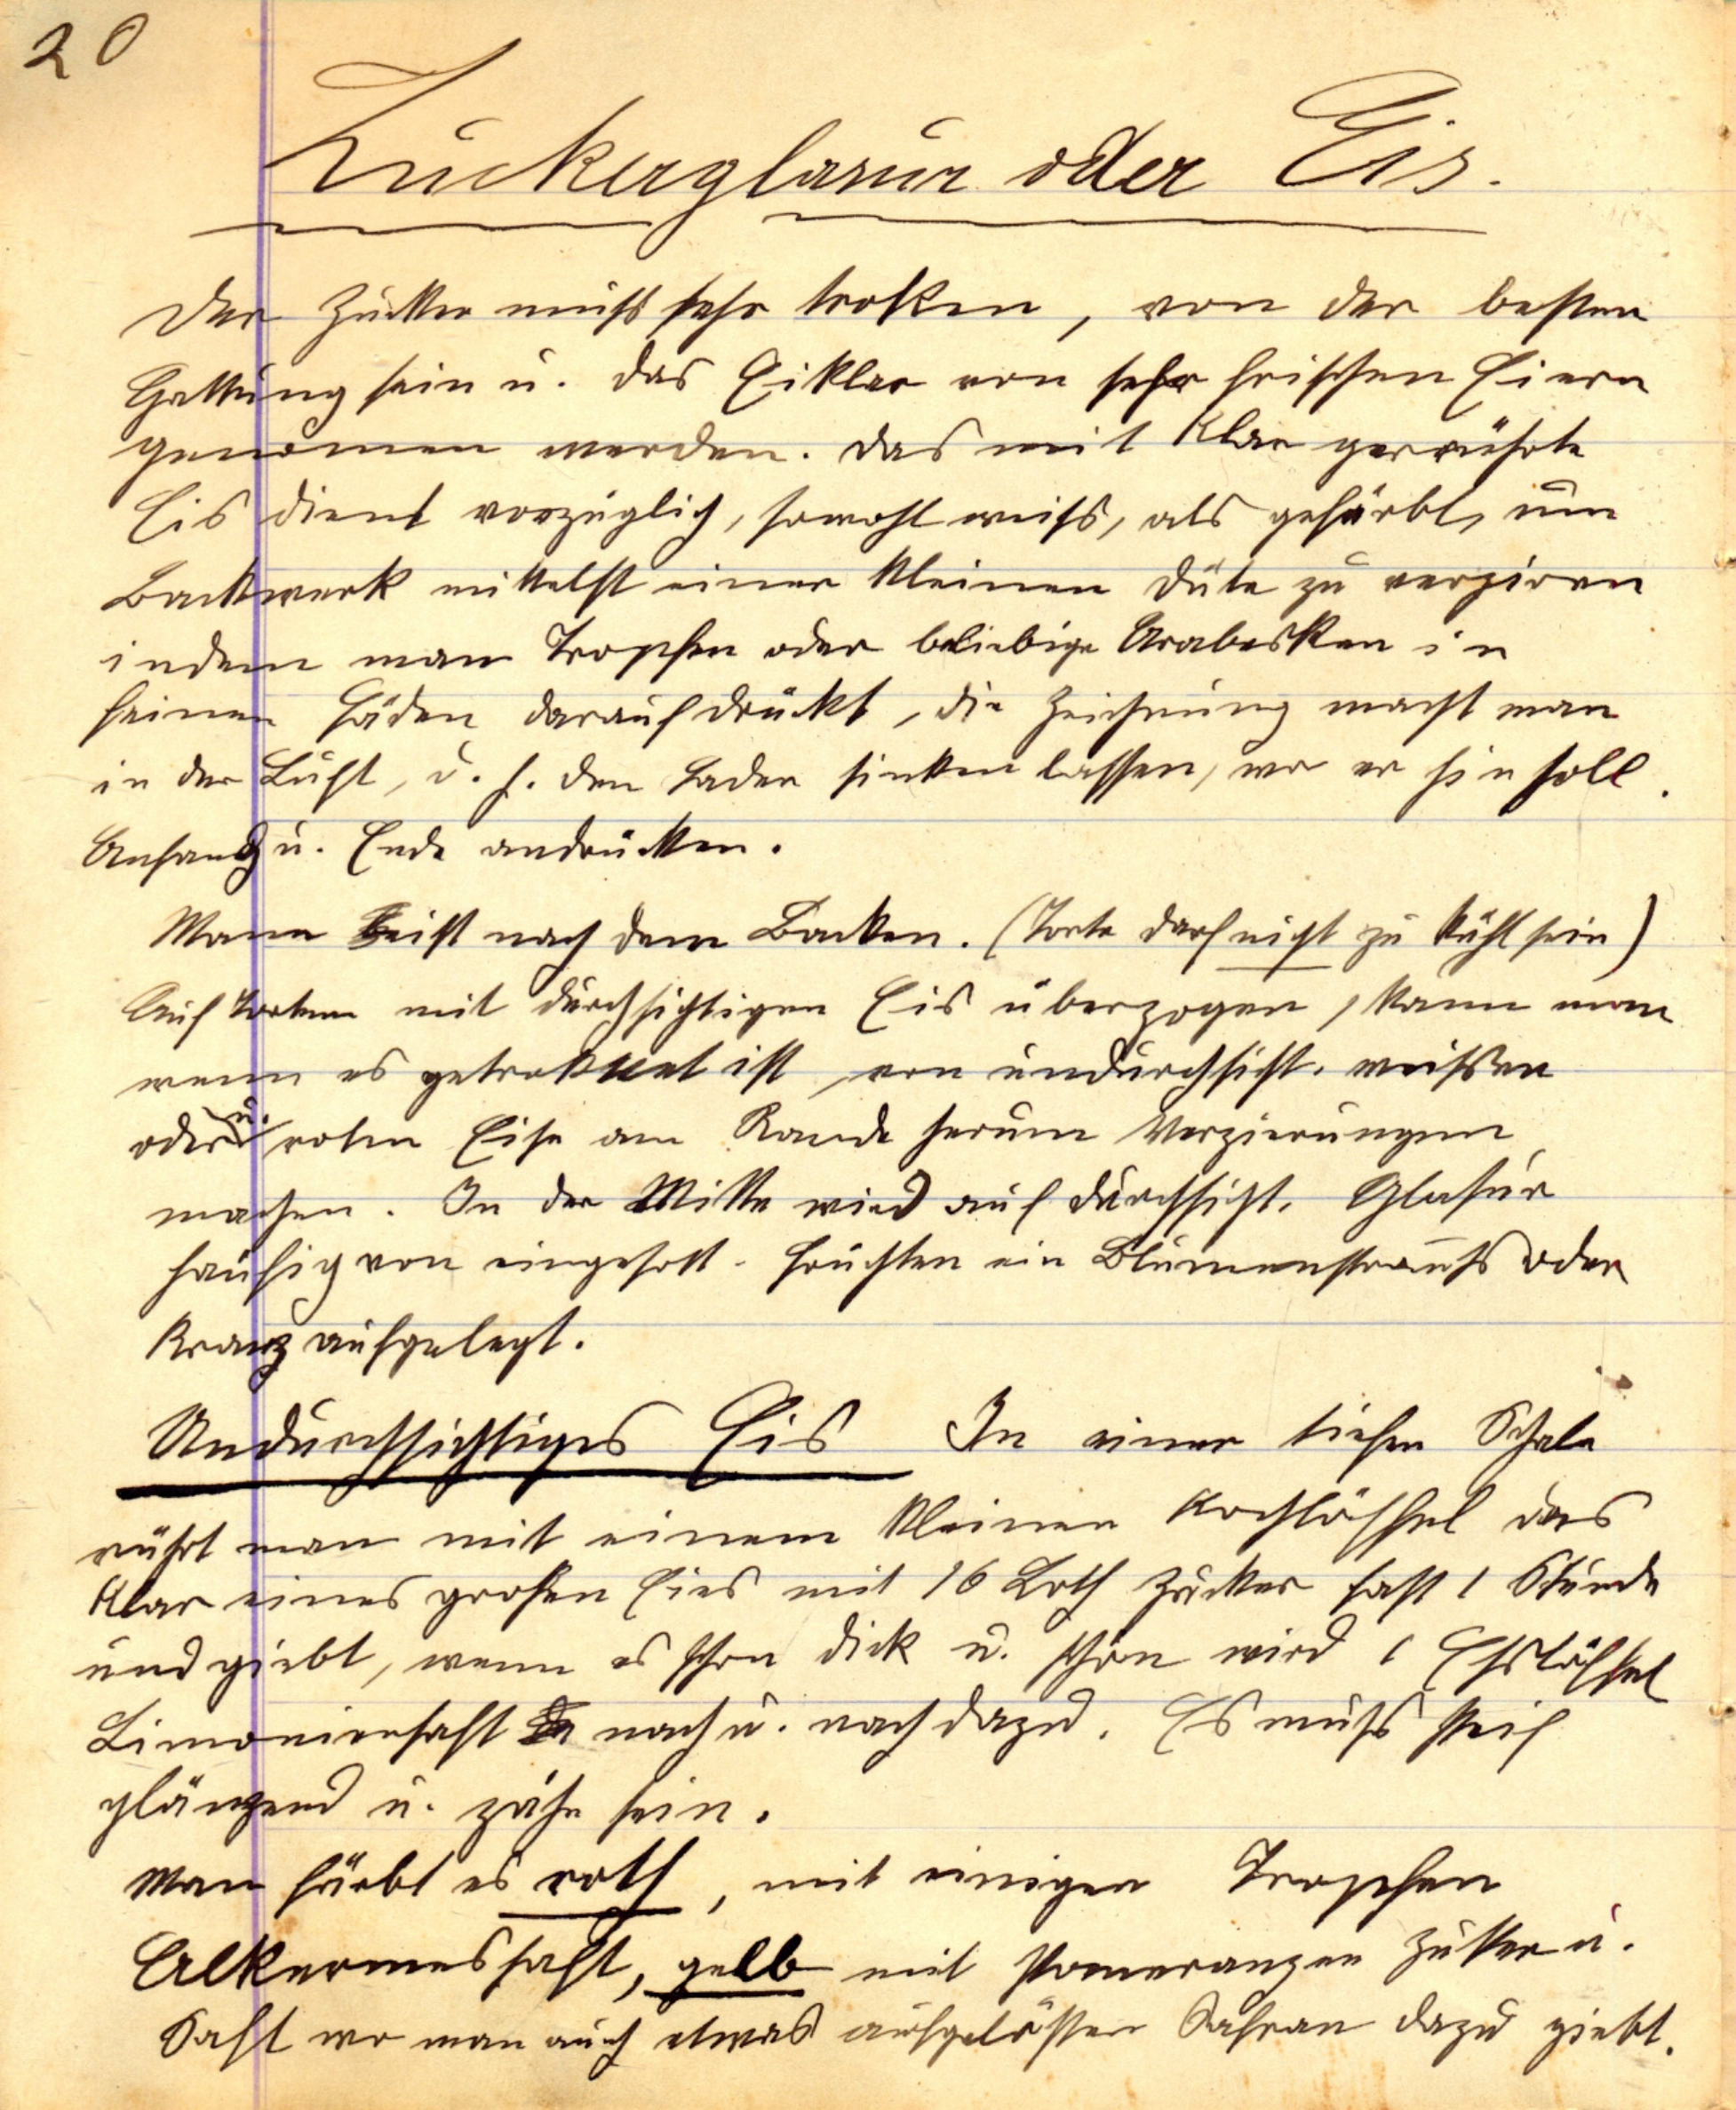 20
Zuckerglasur oder Eis.
Der Zucker muß sehr troken, von der besten
Gattung sein u. das Eiklar von sehr frischen Eiern
genomen werden. Das mit Klar gerührte
Eis dient vorzüglich, sowohl weiß, als gefärbt, um
Backwerk mittelst einer kleinen Düte zu verziren
indem man Tropfen oder beliebige Arabesken in
feinen Fäden darauf drükt, die Zeichnung macht man
in der Luft, d. h. den Faden sinken lassen, wo er hin soll.
Anfang u. Ende andrücken.
Mann eist nach dem Backen. (Torte darf nicht zu kühl sein)
Auf Torten mit durchsichtigen Eis überzogen, kann man
wenn es getroknet ist, von undurchsicht. weißen
oder u. roten Eise am Rande herum Verzierungen
machen. In der Mitte wird auf durchsicht. Glasur
häufig von eingesott. Früchten ein Blumenstrauß oder
Kranz aufgelegt.
Undurchsichtiges Eis In einer tiefen Schale
rührt man mit einem kleinen Kochlöffel das
Klar eines großen Eies mit 16 Loth Zucker fast 1 Stunde
und giebt, wenn es schon dick u. schön wird 1 Eßlöffel
Limoniensaft nach u. nach dazu. Es muß steif
glänzend u. zähe sein.
Man färbt es roth, mit einigen Tropfen
Alkermessaft, gelb mit Pomeranzen Zucker u.
Saft wo man auch etwas aufgelösten Safran dazu giebt.